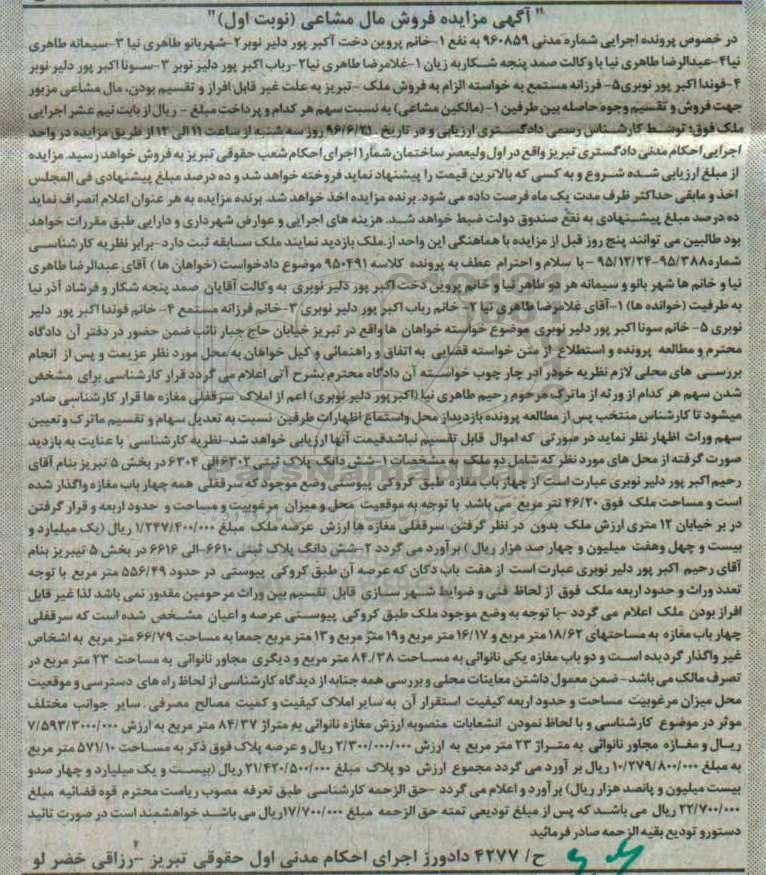 " آگهی مزایده فروش مال مشاعی (نوبت اول)"
در خصوص پرونده اجرایی شماره مدنی ۹۶۰۸۵۹ به نفع ۱-خانم پروین دخت آکبر پور دلیر نوبر۲-شهربانو طاهری نیا ۳-سیمانه طاهری
نیا۴-عبدالرضا طاهری نیا با وکالت صمد پنجه شکاربه زیان ۱-غلامرضا طاهری نیا۲-رباب اکبر پور دلیر نوبر ۳-سونا اکبر پور دلیر نوبر
۴-فوندا اکبر پور نوبری۵- فرزانه مستمع به خواسته الزام به فروش ملک - تبریز به علت غیر قابل افراز و تقسیم بودن، مال مشاعی مزبور
جهت فروش و تقسیم وجوه حاصله بین طرفین ۱-(مالکین مشاعی) به نسبت سهم هر کدام و پرداخت مبلغ - ریال از بابت نیم عشر اجرایی
ملک فوق؛ توسط کارشناس رسمی دادگستری ارزیابی و در تاریخ ۹۶/۶/۲۱ روز سه شنبه از ساعت ۱۱ الی ۱۲ از طریق مزایده در واحد
اجرایی احکام مدنی دادگستری تبریز واقع در اول ولیعصر ساختمان شمار۱ اجرای احکام شعب حقوقی تبریز به فروش خواهد رسید. مزایده
از مبلغ ارزیابی شده شروع و به کسی که بالاترین قیمت را پیشنهاد نماید فروخته خواهد شد و ده درصد مبلغ پیشنهادی فی المجلس
اخذ و مابقی حداکثر ظرف مدت یک ماه فرصت داده می شود. برنده مزایده اخذ خواهد شد. برنده مزایده به هر عنوان اعلام انصراف نماید
ده درصد مبلغ پیشنهادی به نفع صندوق دولت ضبط خواهد شد. هزینه های اجرایی و عوارض شهرداری و دارایی طبق مقررات خواهد
بود طالبین می توانند پنج روز قبل از مزایده با هماهنگی این واحد از.ملک بازدید نمایند ملک سابقه ثبت دارد-برابر نظریه کارشناسی
شماره۹۵/۳۸۸-۹۵/۱۲/۲۴ - با سلام و احترام عطف به پرونده کلاسه ۹۵۰۴۹۱ موضوع دادخواست (خواهان ها ) آقای عبدالرضا طاهری
نیا و خانم ها شهر بانو و سیمانه هر دو طاهر نیا و خانم پروین دخت اکبر پور دلیر نوبری به وکالت آقایان صمد پنجه شکار و فرشاد آذر نیا
به طرفیت (خوانده ها) ۱-آقای غلامرضا طاهری نیا ۲- خانم رباب اکبر پور دلیر نوبری ۳-خانم فرزانه مستمع ۴- خانم فوندا اکبر پور دلیر
نوبری ۵- خانم سونا اکبر پور دلیر نوبری موضوع خواسته خواهان ها واقع در تبریز خیابان حاج جبار نائب ضمن حضور در دفتر آن دادگاه
محترم و مطالعه پرونده و استطلاع از متن خواسته قضایی به اتفاق و راهنمائی وکیل خواهان به محل مورد نظر عزیمت و پس از انجام
بررسی های محلی لازم نظریه خود را در چار چوب خواسته آن دادگاه محترم بشرح آتی اعلام می گردد قرار کارشناسی برای مشخص
شدن سهم هر کدام از ورثه از ماترک مرحوم رحیم طاهری نیا (اکبر پور دلیر نوبری) اعم از املاک سرقفلی مغازه ها قرار کارشناسی صادر
میشود تا کارشناس منتخب پس از مطالعه پرونده بازدید از محل واستماع اظهارات طرفین نسبت به تعدیل سهام و تقسیم ماترک و تعیین
سهم وراث اظهار نظر نماید در صورتی که اموال قابل تقسیم نباشدقیمت آنها ارزیابی خواهد شد-نظریه کارشناسی با عنایت به بازدید
صورت گرفته از محل های مورد نظر که شامل دو ملک به مشخصات ۱-شش دانگ پلاک ثبتی ۶۳۰۲ الی ۶۳۰۴ در بخش ۵ تبریز بنام آقای
رحیم اکبر پور دلیر نوبری عبارت است از چهار باب مغازه طبق کروکی پیوستی وضع موجود که سرقفلی همه چهار باب مغازه واگذار شده
است و مساحت ملک فوق ۴۶/۲۰ متر مربع می باشد با توجه به موقعیت محل و میزان مرغوبیت و مساحت و حدود اربعه و قرار گرفتن
در بر خیابان ۱۲ متری ارزش ملک بدون در نظر گرفتن سرقفلی مغازه ها ارزش عرصه ملک مبلغ ۱/۲۴۷/۴۰۰/۰۰۰ ریال (یک میلیارد و
بیست و چهل وهفت میلیون و چهار صد هزار ریال ) برآورد می گردد ۲-شش دانگ پلاک ثبتی ۶۶۱۰-الی ۶۶۱۶ در بخش ۵ تبریز بنام
آقای رحیم اکبر پور دلیر نوبری عبارت است از هفت باب دکان که عرصه آن طبق کروکی پیوستی در حدود ۵۵۶/۴۹ متر مربع با توجه
تعدد وراث و حدود اربعه ملک فوق از لحاظ فنی و ضوابط شهر سازی قابل تقسیم بین وراث مرحومین مقدور نمی باشد لذا غیر قابل
افراز بودن ملک اعلام می گردد -با توجه به وضع موجود ملک طبق کروکی پیوستی عرصه و اعیان مشخص شده است که سرقفلی
چهار باب مغازه به مساحتهای ۱۸/۶۲ متر مربع و ۱۶/۱۷ متر مربع و۱۹ متر مربع و۱۳ متر مربع جمعا به مساحت ۶۶/۷۹ متر مربع به اشخاص
غیر واگذار گردیده است و دو باب مغازه یکی نانوائی به مساحت ۸۴/۳۸ متر مربع و دیگری مجاور نانوائی به مساحت ۲۳ متر مربع در
تصرف مالک می باشد- ضمن معمول داشتن معاینات محلی و بررسی همه جنابه از دیدگاه کارشناسی از لحاظ راه های دسترسی و موقعیت
محل میزان مرغوبیت مساحت و حدود اربعه کیفیت استقرار آن به سایر املاک کیفیت و کمیت مصالح مصرفی . سایر جوانب مختلف
موثر در موضوع کارشناسی و با لحاظ نمودن انشعابات منصوبه ارزش مغازه نانوائی به متراژ ۸۴/۳۷ متر مربع به ارزش ۷/۵۹۳/۳۰۰۰/۰۰۰
ریال و مغازه مجاور نانوائی به متراژ ۲۳ متر مربع به ارزش ۲/۳۰۰/۰۰۰/۰۰۰ ریال و عرصه پلاک فوق ذکر به مساحت ۵۷۱/۱۰ متر مربع
به مبلغ ۱۰/۲۷۹/۸۰۰/۰۰۰ ریال بر آورد می گردد مجموع ارزش دو پلاک مبلغ ۲۱/۴۲۰/۵۰۰/۰۰۰ ریال (بیست و یک میلیارد و چهار صدو
بیست میلیون و پانصد هزار ریال) برآورد و اعلام می گردد -حق الزحمه کارشناسی طبق تعرفه مصوب ریاست محترم قوه قضائیه مبلغ
۲۲/۷۰۰/۰۰۰ ریال می باشد که پس از مبلغ تودیعی تمته حق الزحمه مبلغ ۱۷/۷۰۰/۰۰۰ریال می باشد خواهشمند است در صورت تائید
دستورو تودیع بقیه الزحمه صادر فرمائید
ح/ ۴۲۷۷ دادورز اجرای احکام مدنی اول حقوقی تبریز -رزاقی خضر لو